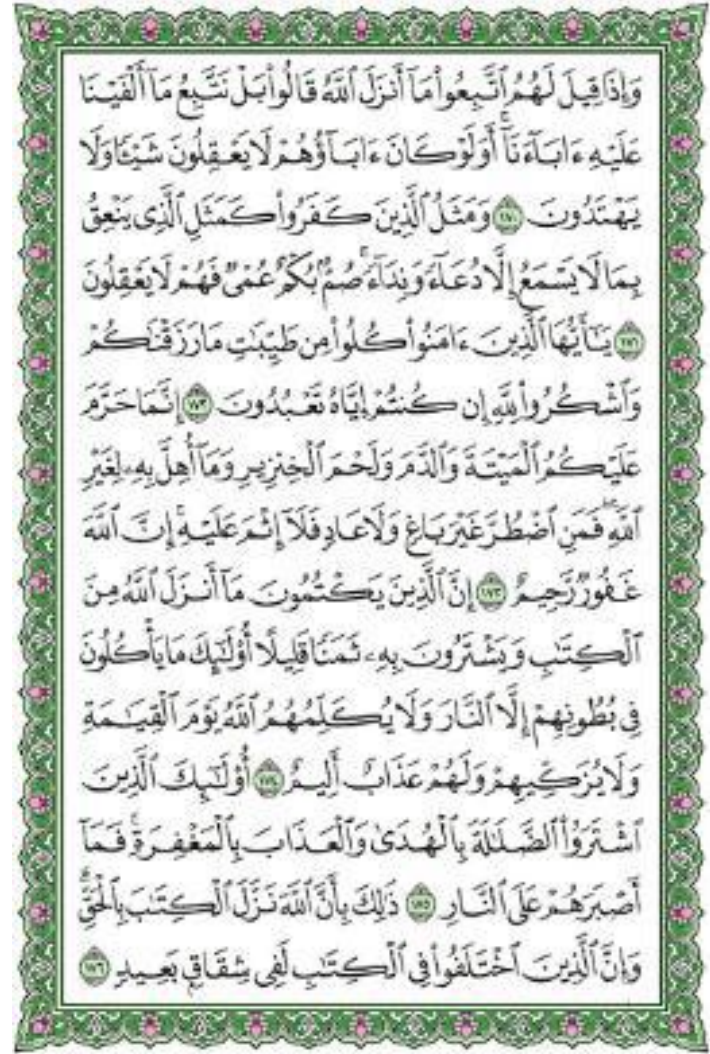 وَإِذَا قِيلَ لَهُمُ ٱتَّبِعُوا۟ مَآ أَنزَلَ ٱللَّهُ قَالُوا۟ بَلْ نَتَّبِعُ مَآ أَلْفَيْنَا
عَلَيْهِ ءَابَآءَنَآ ۗ أَوَلَوْ كَانَ ءَابَآؤُهُمْ لَا يَعْقِلُونَ شَيْـًٔا وَلَا
يَهْتَدُونَ ١٧٠ وَمَثَلُ ٱلَّذِينَ كَفَرُوا۟ كَمَثَلِ ٱلَّذِى يَنْعِقُ
بِمَا لَا يَسْمَعُ إِلَّا دُعَآءً وَنِدَآءً ۚ صُمٌّۢ بُكْمٌ عُمْىٌ فَهُمْ لَا يَعْقِلُونَ
١٧١ يَـٰٓأَيُّهَا ٱلَّذِينَ ءَامَنُوا۟ كُلُوا۟ مِن طَيِّبَـٰتِ مَا رَزَقْنَـٰكُمْ
وَٱشْكُرُوا۟ لِلَّهِ إِن كُنتُمْ إِيَّاهُ تَعْبُدُونَ ١٧٢ إِنَّمَا حَرَّمَ
عَلَيْكُمُ ٱلْمَيْتَةَ وَٱلدَّمَ وَلَحْمَ ٱلْخِنزِيرِ وَمَآ أُهِلَّ بِهِۦ لِغَيْرِ
ٱللَّهِ ۖ فَمَنِ ٱضْطُرَّ غَيْرَ بَاغٍ وَلَا عَادٍ فَلَآ إِثْمَ عَلَيْهِ ۚ إِنَّ ٱللَّهَ
غَفُورٌ رَّحِيمٌ ١٧٣ إِنَّ ٱلَّذِينَ يَكْتُمُونَ مَآ أَنزَلَ ٱللَّهُ مِنَ
ٱلْكِتَـٰبِ وَيَشْتَرُونَ بِهِۦ ثَمَنًا قَلِيلًا أُو۟لَـٰٓئِكَ مَا يَأْكُلُونَ
فِى بُطُونِهِمْ إِلَّا ٱلنَّارَ وَلَا يُكَلِّمُهُمُ ٱللَّهُ يَوْمَ ٱلْقِيَـٰمَةِ
وَلَا يُزَكِّيهِمْ وَلَهُمْ عَذَابٌ أَلِيمٌ ١٧٤ أُو۟لَـٰٓئِكَ ٱلَّذِينَ
ٱشْتَرَوُا۟ ٱلضَّلَـٰلَةَ بِٱلْهُدَىٰ وَٱلْعَذَابَ بِٱلْمَغْفِرَةِ ۚ فَمَآ
أَصْبَرَهُمْ عَلَى ٱلنَّارِ ١٧٥ ذَٰلِكَ بِأَنَّ ٱللَّهَ نَزَّلَ ٱلْكِتَـٰبَ بِٱلْحَقِّ ۗ
وَإِنَّ ٱلَّذِينَ ٱخْتَلَفُوا۟ فِى ٱلْكِتَـٰبِ لَفِى شِقَاقٍۭ بَعِيدٍ ١٧٦